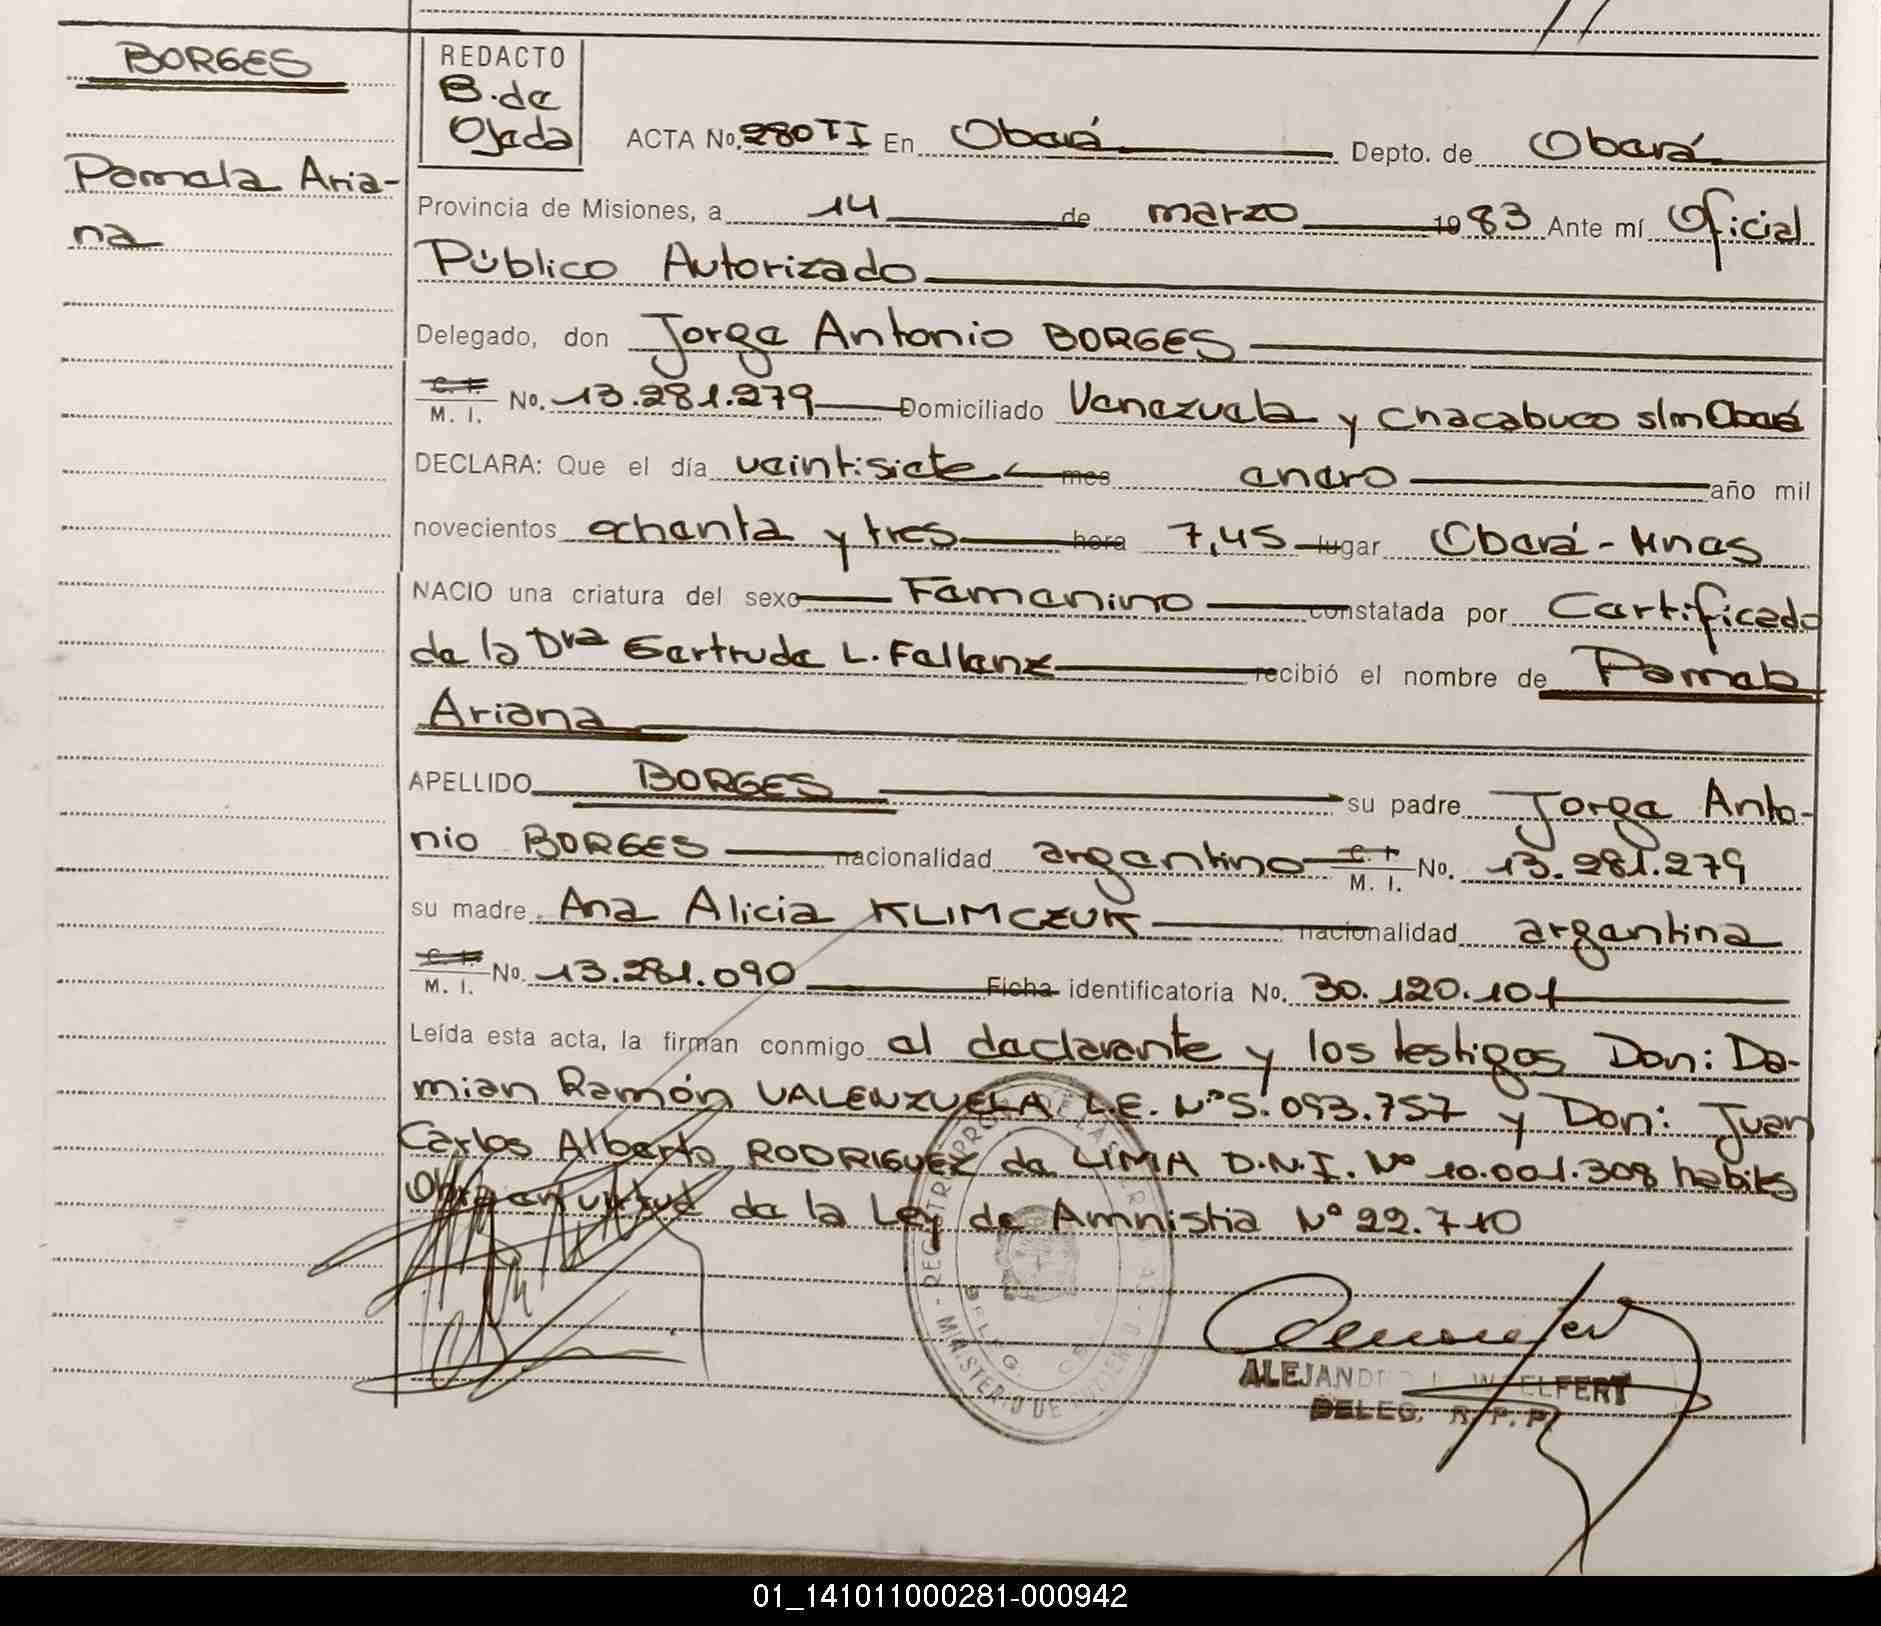 BORGES
Pamela Aria-
na
REDACTO
B. de
Ojeda
ACTA No. 280 TI En Oberá Depto. de Oberá
Provincia de Misiones, a 14 de marzo 1983 Ante mí Oficial
Público Autorizado
Delegado, don Jorge Antonio BORGES
C. I. M. I. No. 13.281.279 Domiciliado Venezuela y Chacabuco s/n Oberá
DECLARA: Que el día veintisiete mes enero año mil
novecientos ochenta y tres hora 7,45 lugar Oberá - Mnes
NACIO una criatura del sexo Femenino constatada por Certificado
de la Dra Gertrude L. Fallenz recibió el nombre de Pamela
Ariana
APELLIDO BORGES su padre Jorge Anto-
nio BORGES nacionalidad argentino C. I. M. I. No. 13.281.279
su madre Ana Alicia KLIMCZUK nacionalidad argentina
C. I. M. I. No. 13.281.090 Ficha identificatoria No. 30.120.101
Leída esta acta, la firman conmigo el declarante y los testigos Don: Da-
mian Ramón VALENZUELA L.E. Nº 5.093.757 y Don: Juan
Carlos Alberto RODRIGUEZ de LIMA D.N.I. Nº 10.001.308 habiles
Obra en virtud de la Ley de Amnistia Nº 22.710
MINISTERIO DE
DELEG.
ALEJANDRO WELFERT
DELEG. R. P. P.
01_141011000281-000942